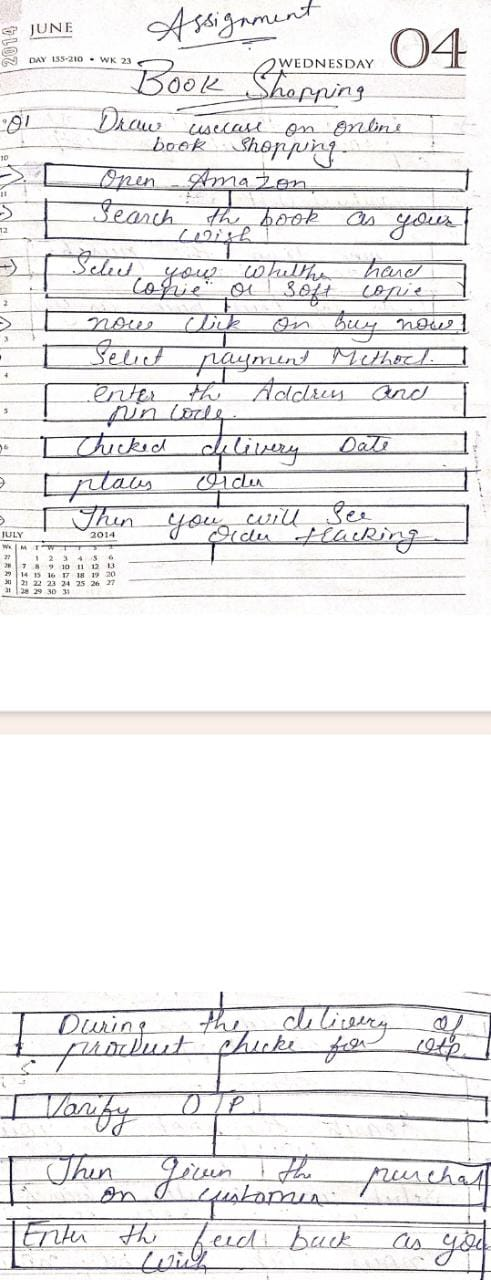 Assignment
2014 JUNE
DAY 155-210 • WK 23
WEDNESDAY 04
Book Shopping
Q1 Draw usecase on online
book shopping.
10
Open Amazon
11
Search the book as your
wish
12
Select your whether hard
copie or soft copie
2
now click on buy now
3
Select payment Method.
4
enter the Address and
pin code.
5
Checked delivery Date
6
place order
Then you will see
order tracking
JULY 2014
Wk M T W T F S S
27 1 2 3 4 5 6
28 7 8 9 10 11 12 13
29 14 15 16 17 18 19 20
30 21 22 23 24 25 26 27
31 28 29 30 31
During the delivery of
product checke for otp
Varify OTP
Then given the purchas
on customer
Enter the feed back as you
wish